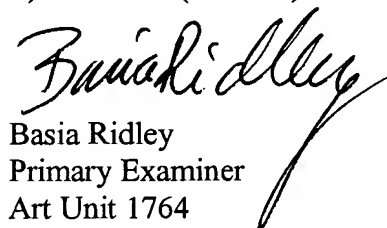 Basia Ridley
Basia Ridley
Primary Examiner
Art Unit 1764